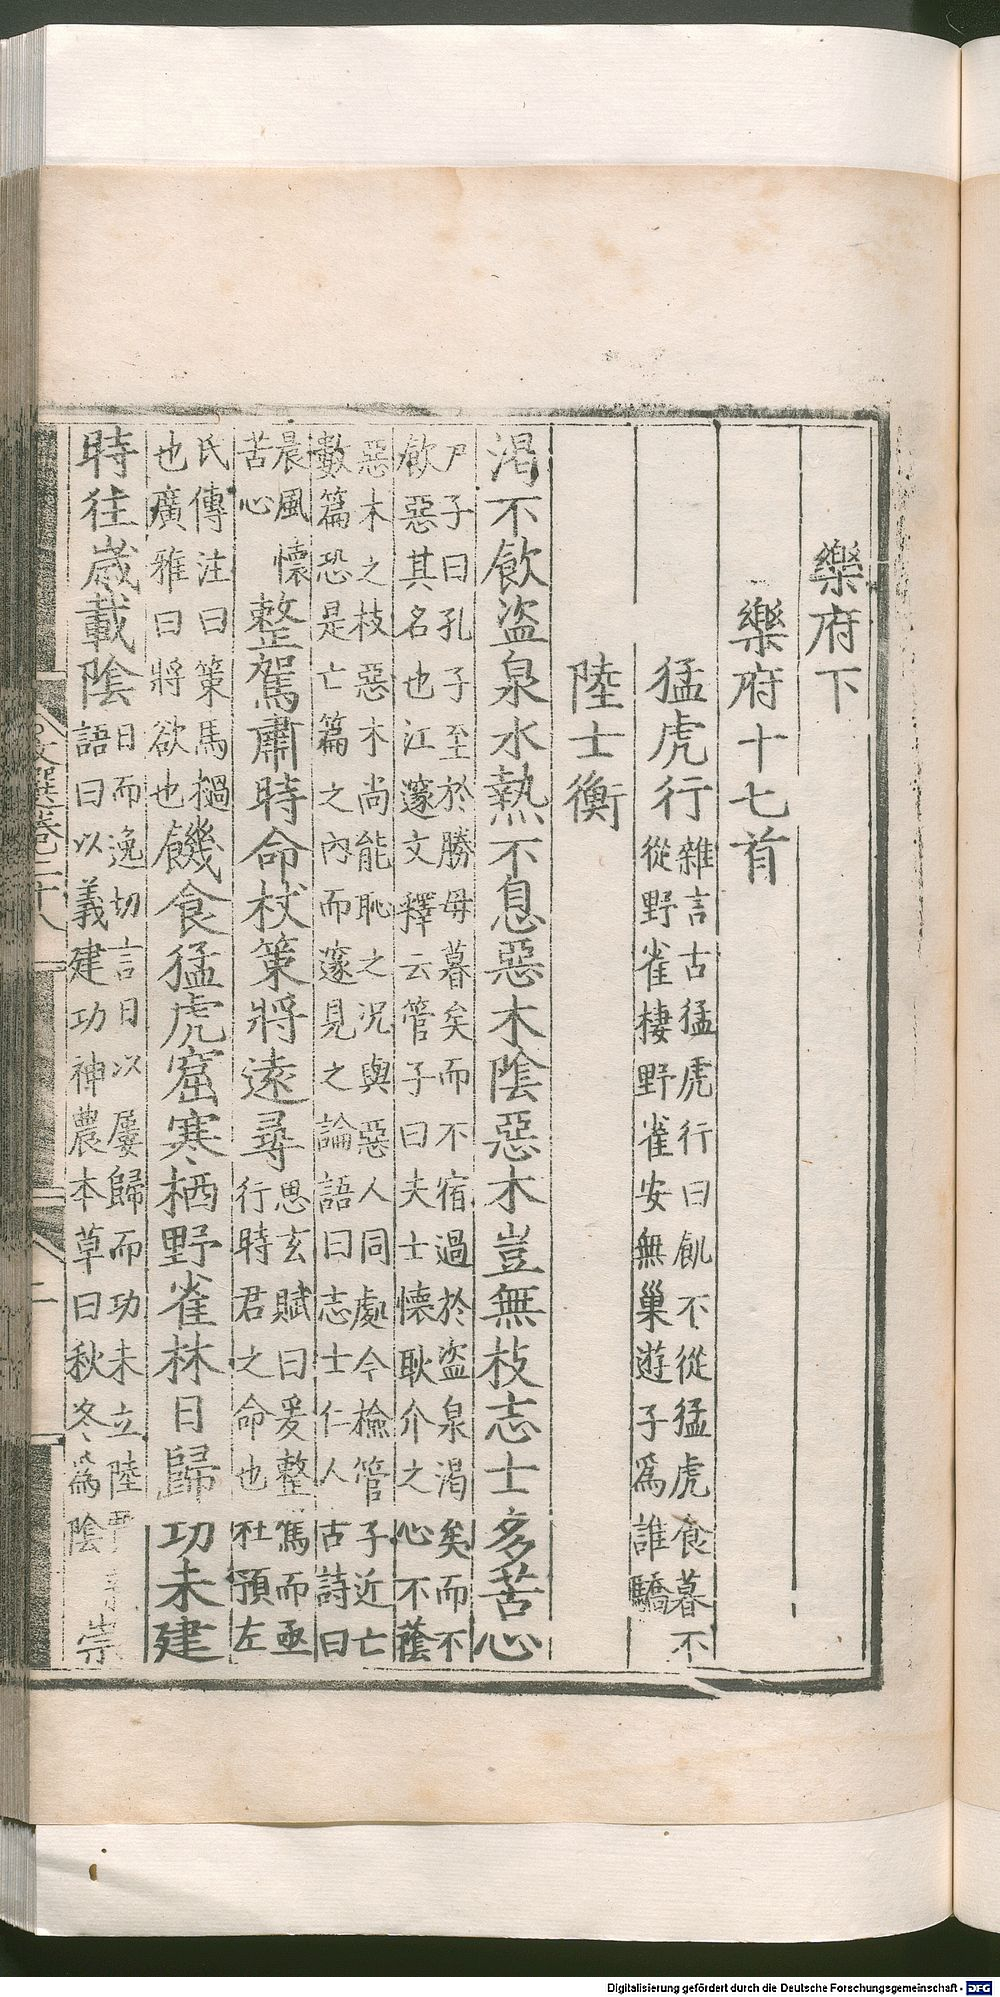 樂府下
樂府十七首
猛虎行雜言古猛虎行曰飢不從猛虎食暮不
從野雀棲野雀安無巢遊子爲誰驕
陸士衡
渴不飲盜泉水熱不息惡木陰惡木豈無枝志士多苦心
尸子曰孔子至於勝母暮矣而不宿過於盜泉渴矣而不
飲惡其名也江邃文釋云管子曰夫士懷耿介之心不蔭
惡木之枝惡木尚能恥之況與惡人同處今檢管子近亡
數篇恐是亡篇之內而邃見之論語曰志士仁人古詩曰
晨風懷
苦心
整駕肅時命杖策將遠尋
思玄賦曰爰整駕而亟
行時君之命也杜預左
氏傳注曰策馬檛
也廣雅曰將欲也
饑食猛虎窟寒栖野雀林日歸功未建
時往歲載陰
日而逸切言日以屢歸而功未立陸
語曰以義建功神農本草曰秋冬爲陰
崇
文選卷二十八
一
Digitalisierung gefördert durch die Deutsche Forschungsgemeinschaft - DFG